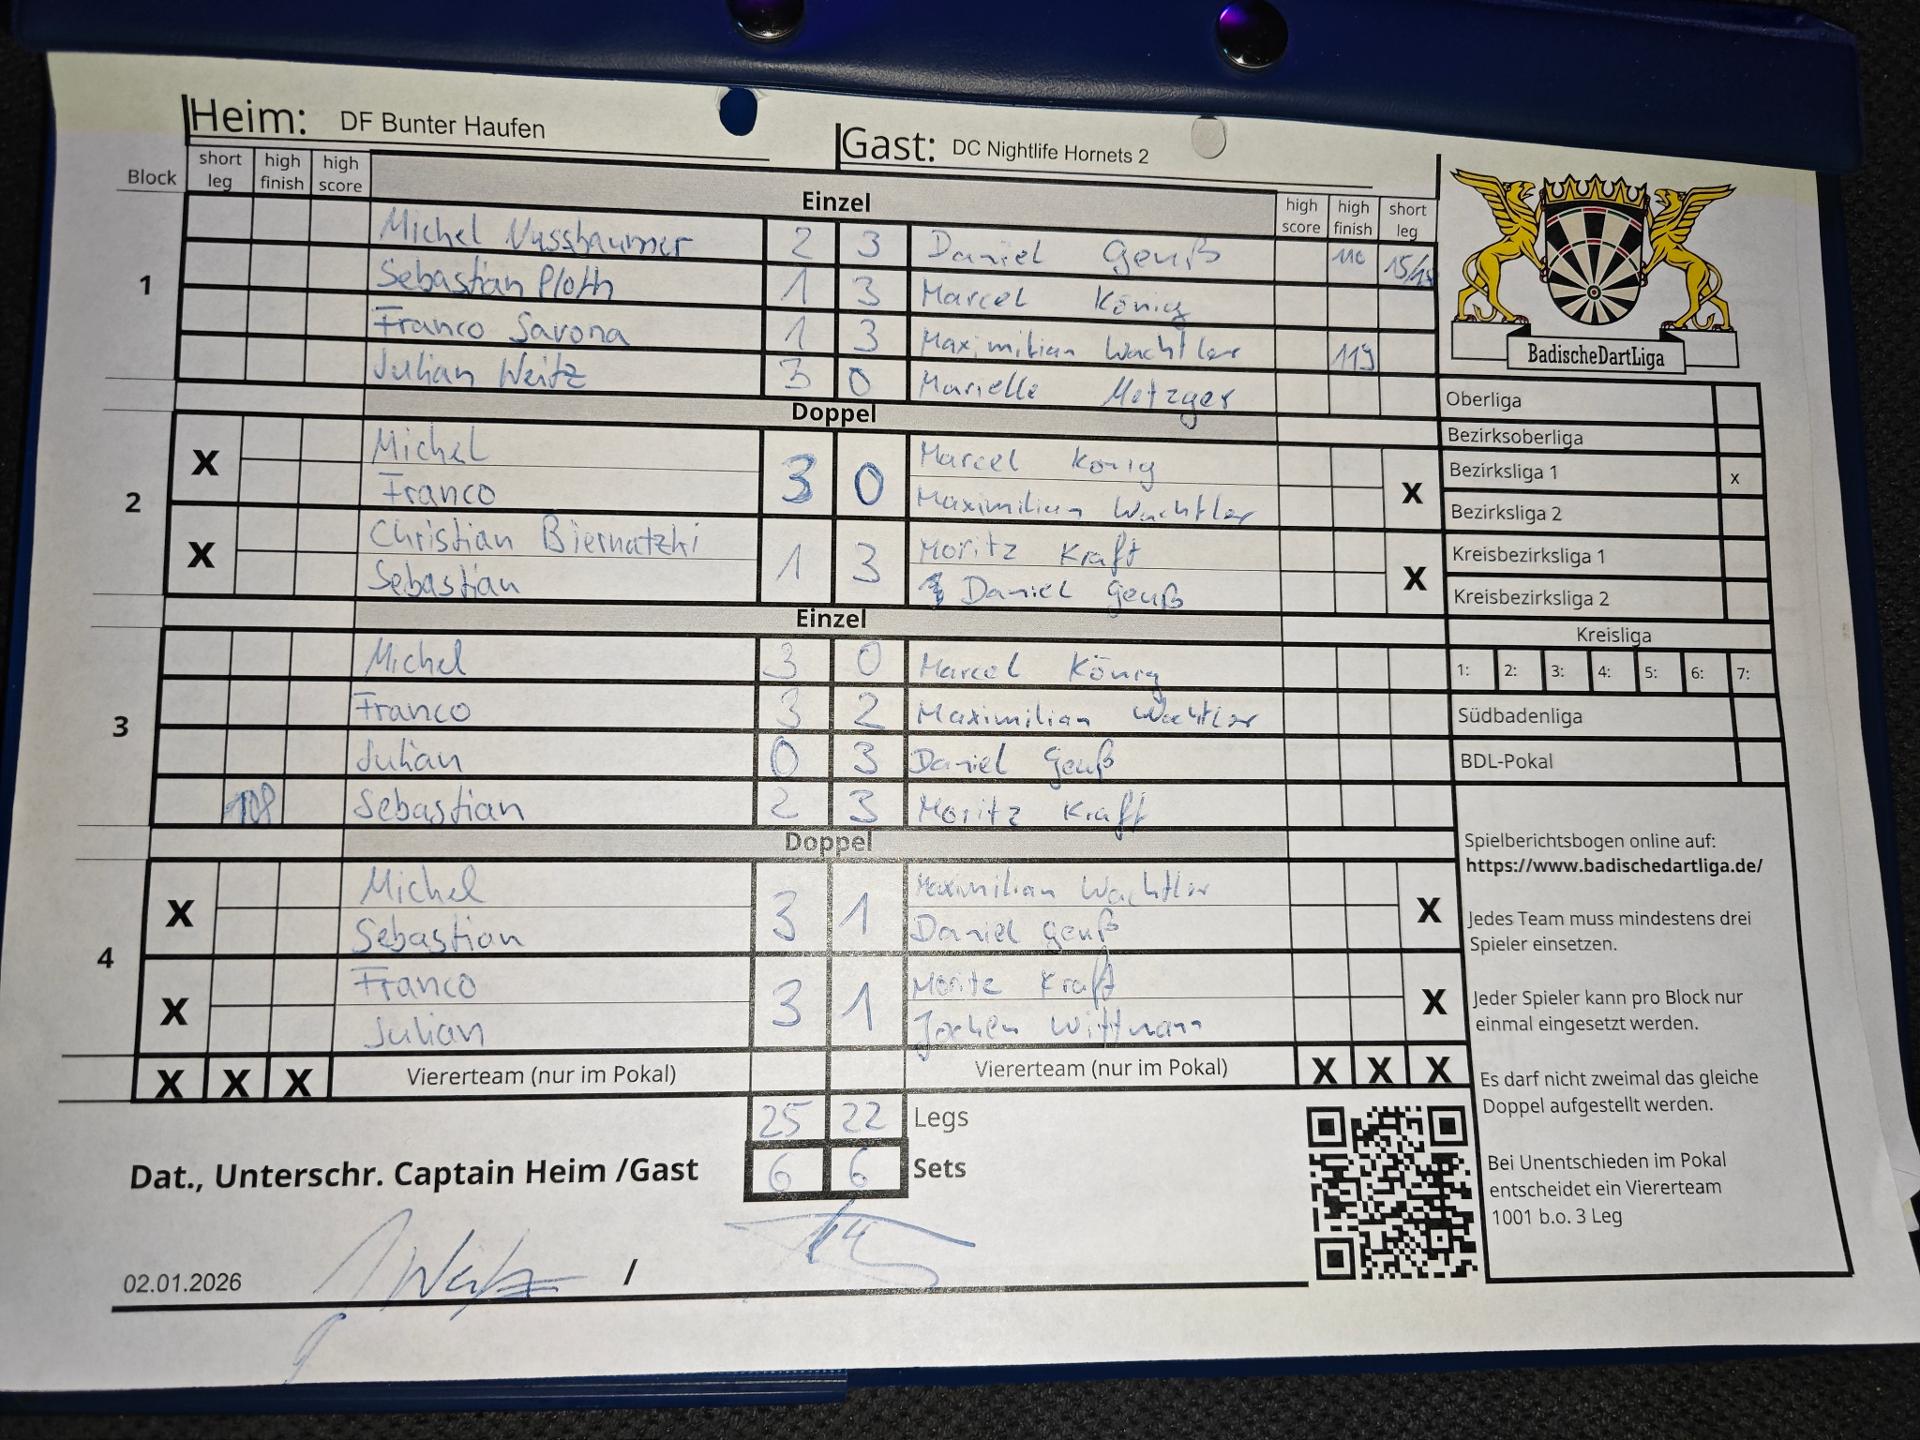 Heim: DF Bunter Haufen
Gast: DC Nightlife Hornets 2
Block short leg high finish high score Einzel high score high finish short leg
1
Michel Nussbaumer 2 3 Daniel Geuß 110 15/15
Sebastian Ploth 1 3 Marcel König
Franco Savona 1 3 Maximilian Wachtler 119
Julian Weitz 3 0 Marielle Metzger
Doppel
2
X Michel 3 0 Marcel König X
Franco Maximilian Wachtler
X Christian Biernatzki 1 3 Moritz Kraft X
Sebastian Daniel Geuß
Einzel
3
Michel 3 0 Marcel König
Franco 3 2 Maximilian Wachtler
Julian 0 3 Daniel Geuß
108 Sebastian 2 3 Moritz Kraft
Doppel
4
X Michel 3 1 Maximilian Wachtler X
Sebastian Daniel Geuß
X Franco 3 1 Moritz Kraft X
Julian Jochen Wittmann
X X X Viererteam (nur im Pokal) Viererteam (nur im Pokal) X X X
25 22 Legs
6 6 Sets
Dat., Unterschr. Captain Heim /Gast
02.01.2026 /
BadischeDartLiga
Oberliga
Bezirksoberliga
Bezirksliga 1 x
Bezirksliga 2
Kreisbezirksliga 1
Kreisbezirksliga 2
Kreisliga
1: 2: 3: 4: 5: 6: 7:
Südbadenliga
BDL-Pokal
Spielberichtsbogen online auf:
https://www.badischedartliga.de/
Jedes Team muss mindestens drei
Spieler einsetzen.
Jeder Spieler kann pro Block nur
einmal eingesetzt werden.
Es darf nicht zweimal das gleiche
Doppel aufgestellt werden.
Bei Unentschieden im Pokal
entscheidet ein Viererteam
1001 b.o. 3 Leg